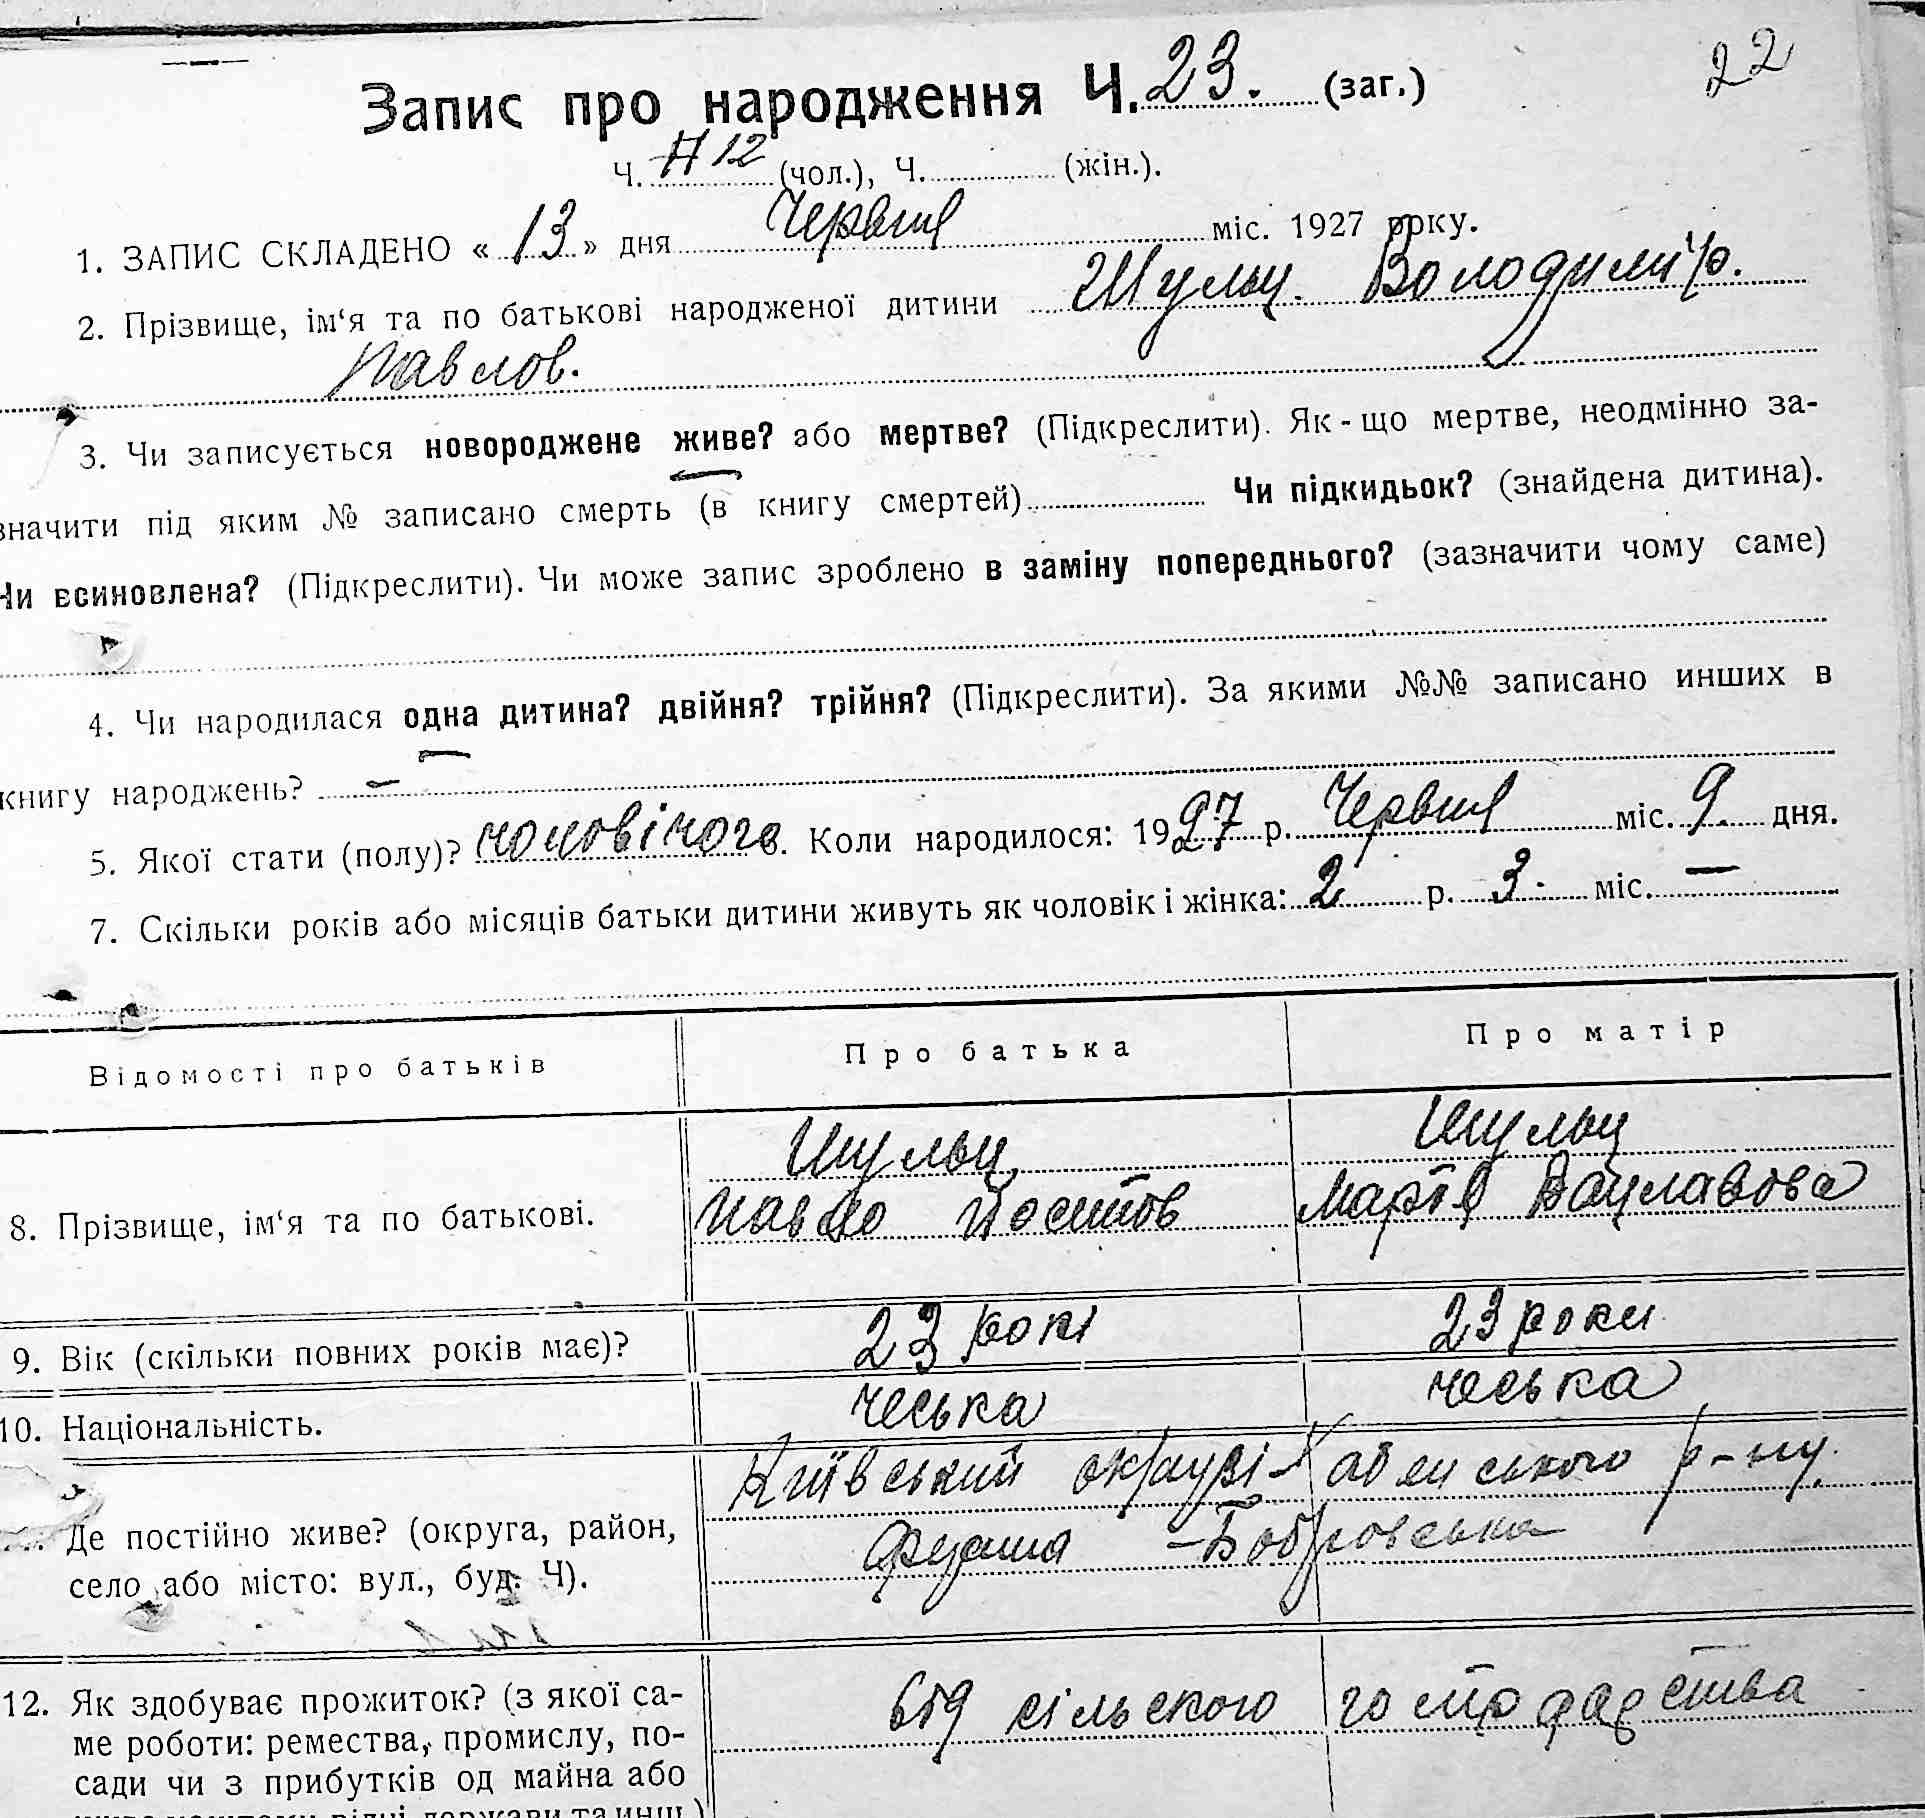 22
Запис про народження Ч. 23. (заг.)
Ч. 12 (чол.), Ч. (жін.).
1. ЗАПИС СКЛАДЕНО « 13 » дня Червня міс. 1927 року.
2. Прізвище, ім‘я та по батькові народженої дитини Шульц. Володимір.
Павлов.
3. Чи записується новороджене живе? або мертве? (Підкреслити). Як-що мертве, неодмінно за-
значити під яким № записано смерть (в книгу смертей) Чи підкидьок? (знайдена дитина).
Чи всиновлена? (Підкреслити). Чи може запис зроблено в заміну попереднього? (зазначити чому саме)
4. Чи народилася одна дитина? двійня? трійня? (Підкреслити). За якими №№ записано инших в
книгу народжень? –
5. Якої стати (полу)? чоловічого. Коли народилося: 1927 р. Червня міс. 9. дня.
7. Скільки років або місяців батьки дитини живуть як чоловік і жінка: 2 р. 3. міс. —
Відомості про батьків Про батька Про матір
Шульц Шульц
8. Прізвище, ім‘я та по батькові. Павло Йосипов Марія Вацлавова
9. Вік (скільки повних років має)? 23 рокі 23 роки
10. Національність. чеська чеська
Київський округи Кабянського р-ну.
Де постійно живе? (округа, район, -Бобровська
село або місто: вул., буд. Ч).
12. Як здобуває прожиток? (з якої са- від сільского господарства
ме роботи: ремества, промислу, по-
сади чи з прибутків од майна або